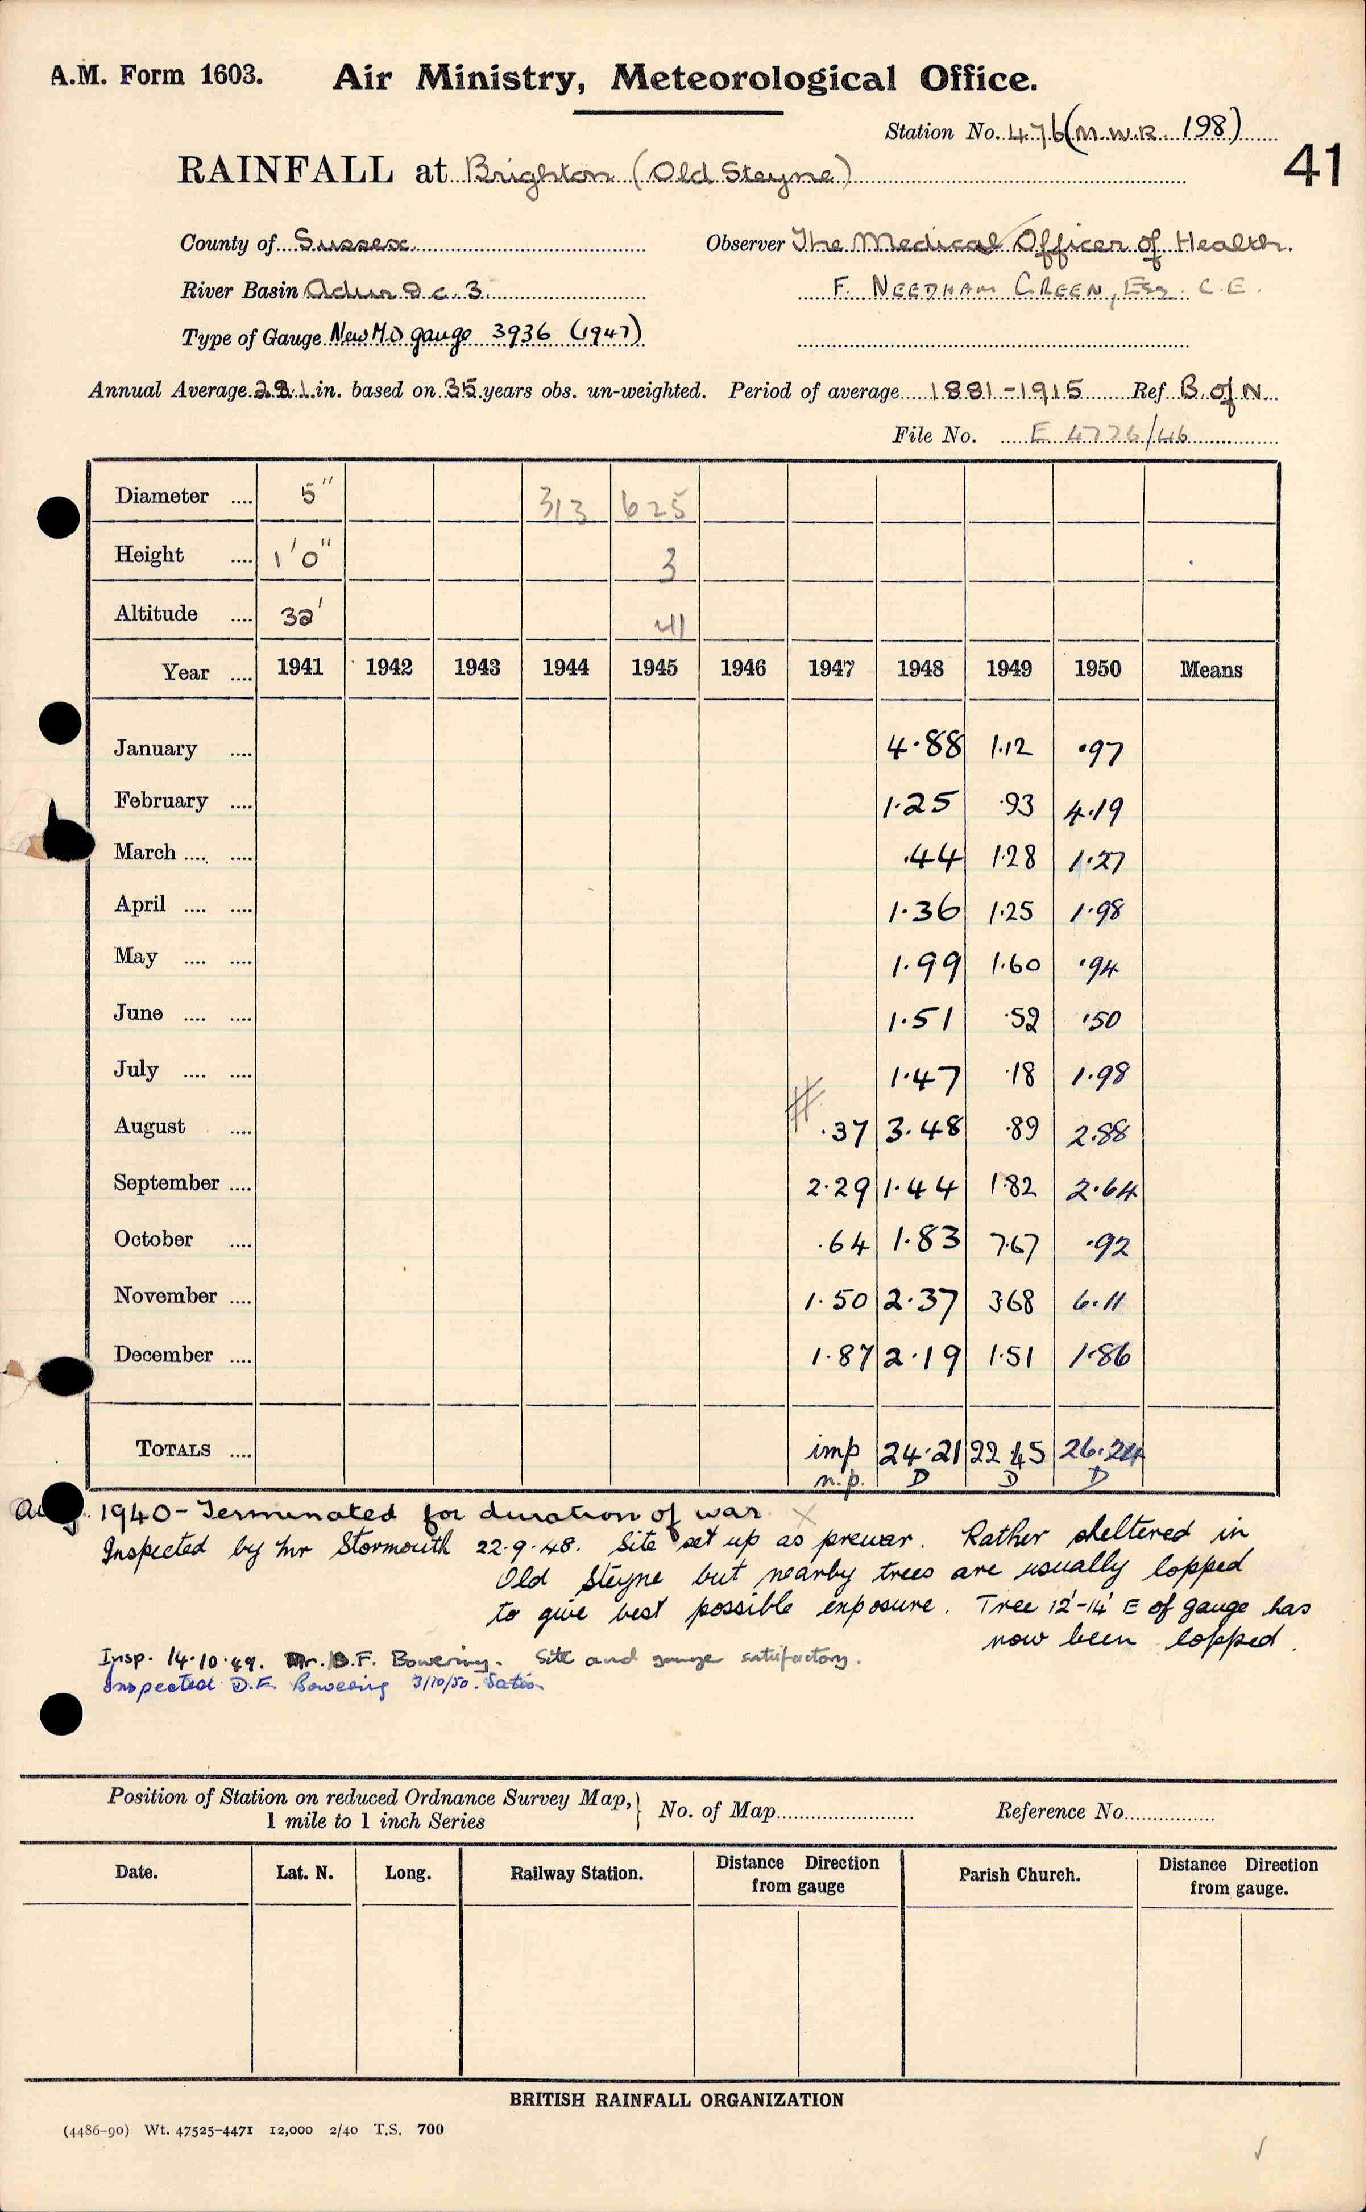 A.M. Form 1603. Air Ministry, Meteorological Office.
Station No. 476 (M.W.R. 198)
41
RAINFALL at Brighton (Old Steyne)
County of Sussex Observer The Medical Officer of Health.
River Basin Adur &c. 3. F. NEEDHAM GREEN, Esq. C.E.
Type of Gauge New MO gauge 3936 (1947)
Annual Average 28.1 in. based on 35 years obs. un-weighted. Period of average 1881-1915 Ref B. of N.
File No. E 4776/46
Diameter .... 5" 313 625
Height .... 1'0" 3
Altitude .... 32' 41
Year .... 1941 1942 1943 1944 1945 1946 1947 1948 1949 1950 Means
January .... 4.88 1.12 .97
February .... 1.25 .93 4.19
March .... .... .44 1.28 1.27
April .... .... 1.36 1.25 1.98
May .... .... 1.99 1.60 .94
June .... .... 1.51 .52 .50
July .... .... 1.47 .18 1.98
August .... .37 3.48 .89 2.88
September .... 2.29 1.44 1.82 2.64
October .... .64 1.83 7.67 .92
November .... 1.50 2.37 3.68 6.11
December .... 1.87 2.19 1.51 1.86
TOTALS .... imp 24.21 22.45 26.24
n.p. D D D
Aug. 1940 - Terminated for duration of war
Inspected by Mr Stormouth 22.9.48. Site set up as prewar. Rather sheltered in
Old Steyne but nearby trees are usually lopped
to give best possible exposure. Tree 12'-14' E of gauge has
now been lopped.
Insp. 14.10.49. Mr. D.F. Bowering. Site and gauge satisfactory.
Inspected D.F. Bowering 3/10/50. Satis
Position of Station on reduced Ordnance Survey Map,
1 mile to 1 inch Series
No. of Map.................... Reference No................
Date. Lat. N. Long. Railway Station. Distance Direction from gauge Parish Church. Distance Direction from gauge.
BRITISH RAINFALL ORGANIZATION
(4486-90) Wt. 47525-4471 12,000 2/40 T.S. 700